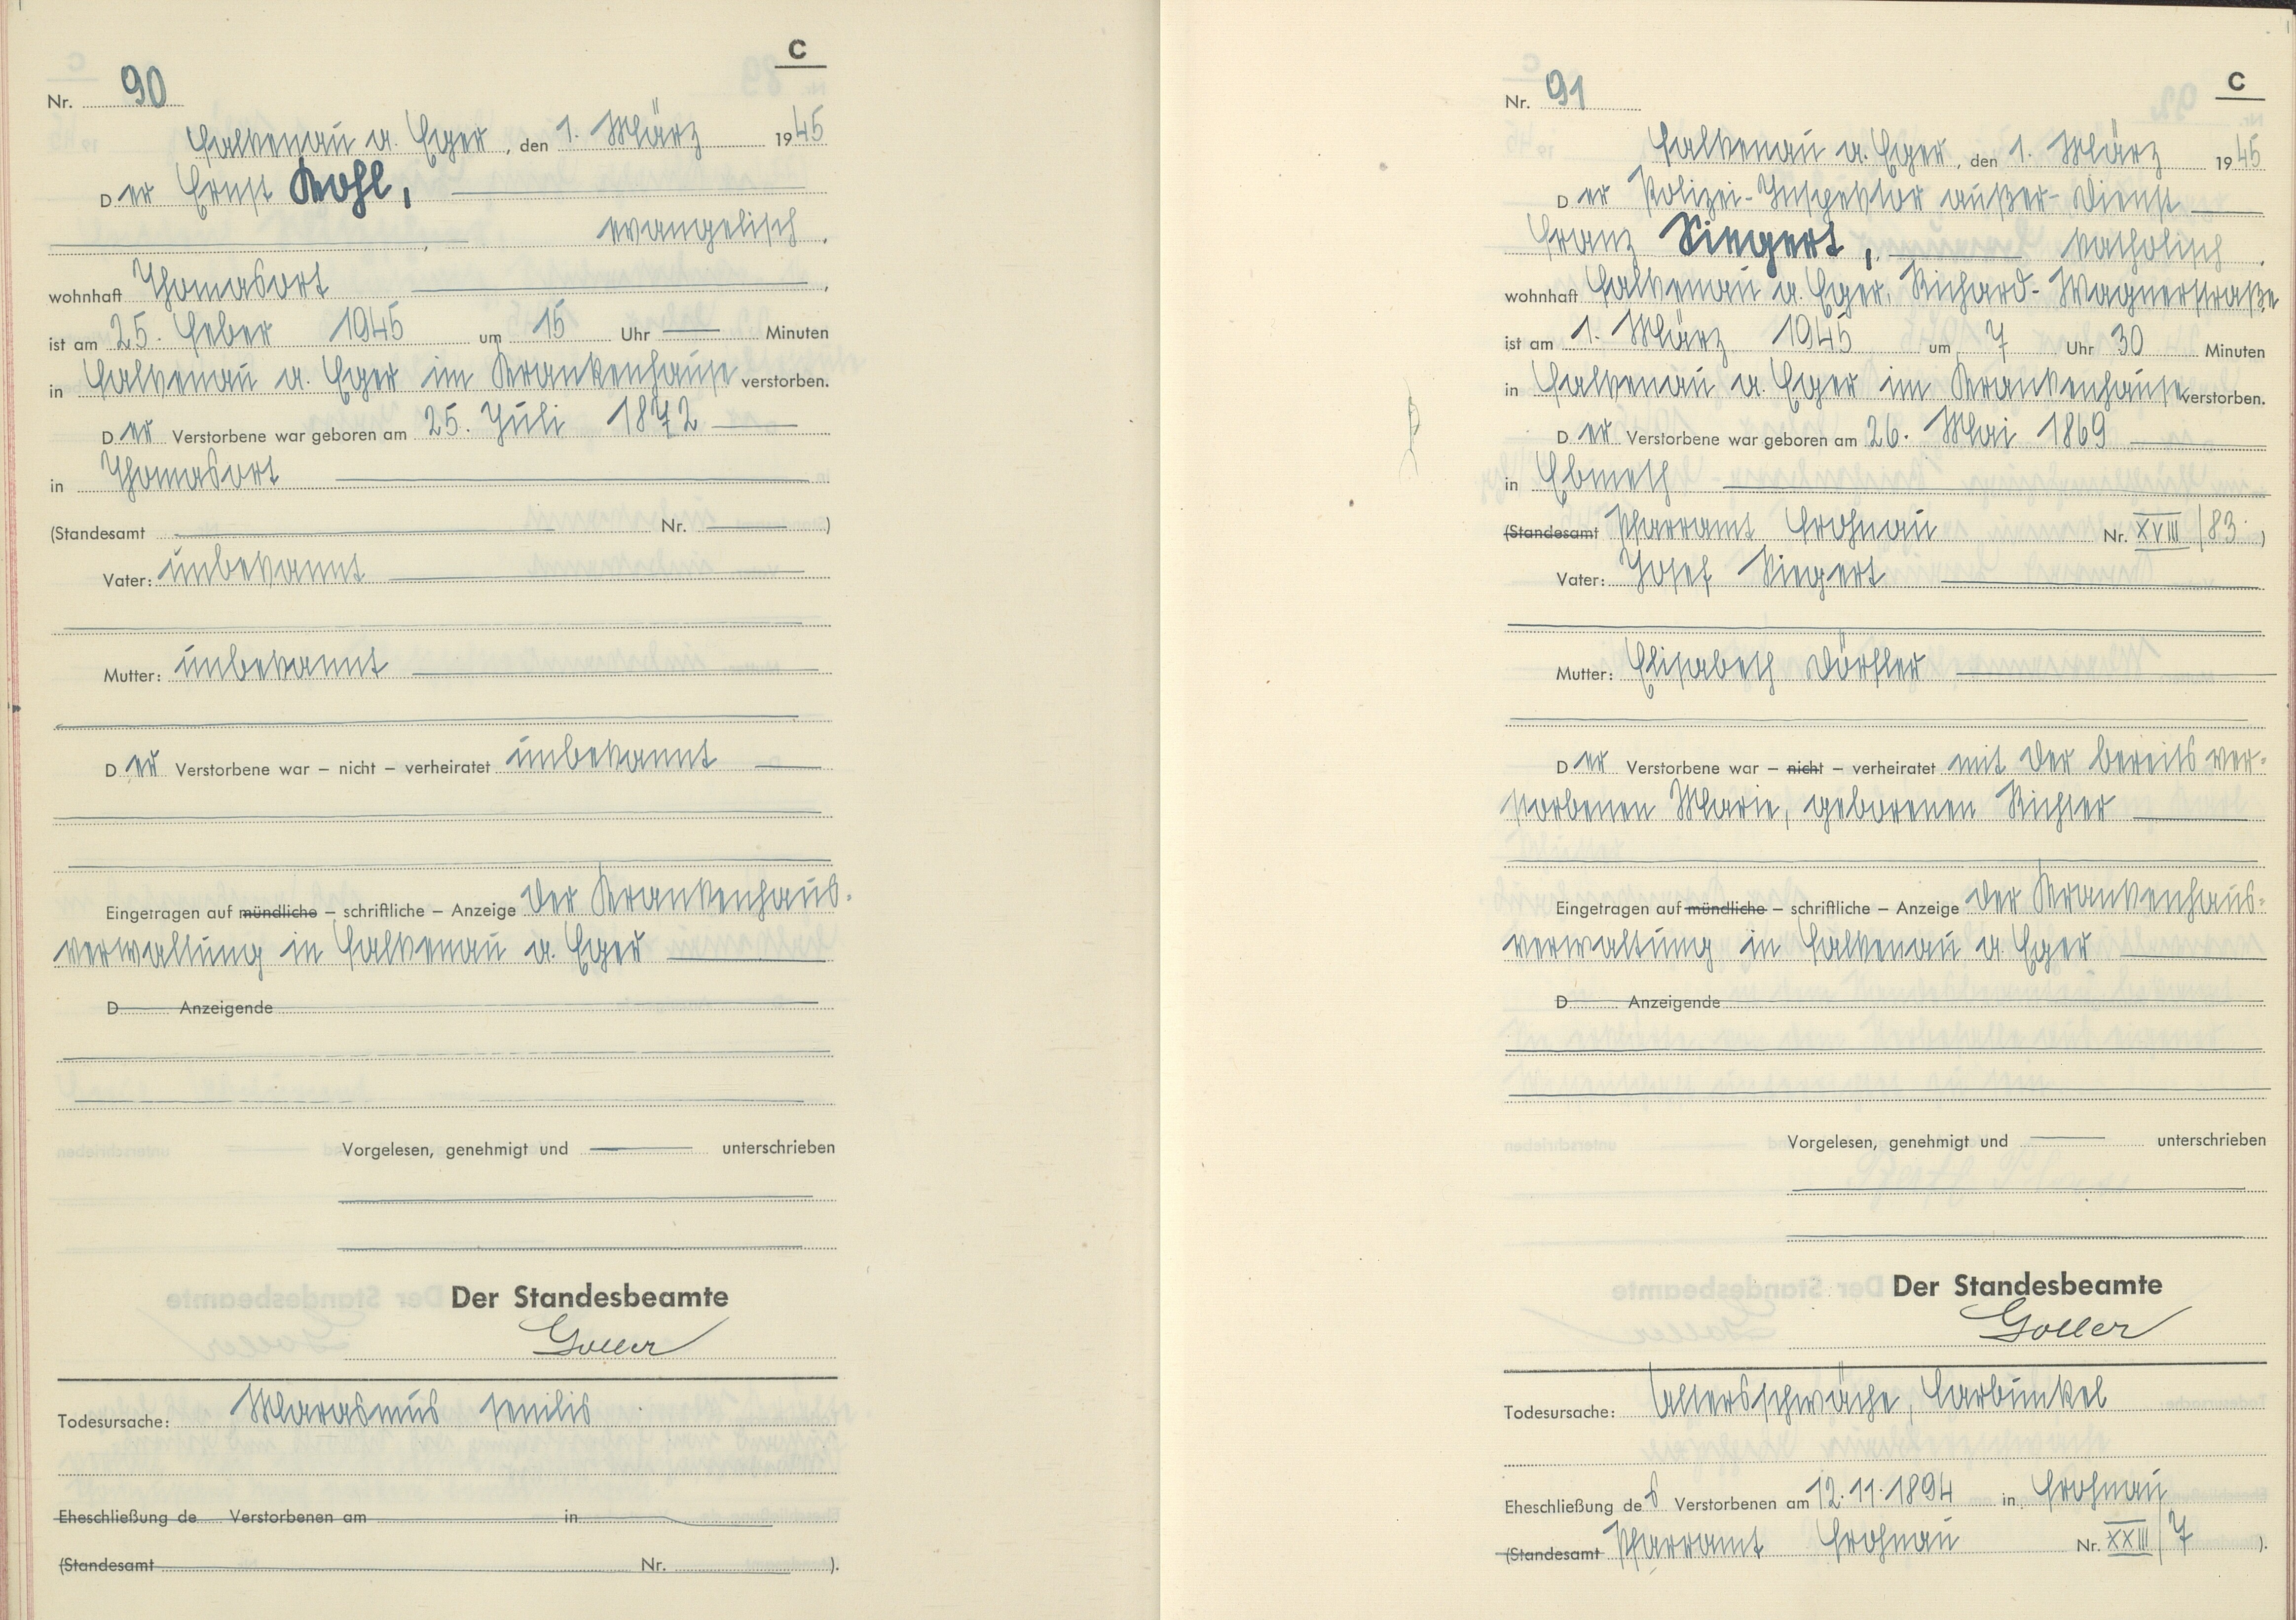 C
Nr. 90
Falkenau a. Eger, den 1. März 1945
Der Ernst Kohl,
evangelisch,
wohnhaft Thomasort,
ist am 25. Feber 1945 um 15 Uhr Minuten
in Falkenau a. Eger im Krankenhause verstorben.
Der Verstorbene war geboren am 25. Juli 1872
in Thomasort
(Standesamt Nr. )
Vater: unbekannt
Mutter: unbekannt
Der Verstorbene war – nicht – verheiratet unbekannt
Eingetragen auf mündliche – schriftliche – Anzeige der Krankenhaus-
verwaltung in Falkenau a. Eger
D Anzeigende
Vorgelesen, genehmigt und unterschrieben
Der Standesbeamte
Goller
Todesursache: Marasmus senilis
Eheschließung de Verstorbenen am in
(Standesamt Nr. ).
C
Nr. 91
Falkenau a. Eger, den 1. März 1945
Der Polizei-Inspektor außer-Dienst
Franz Siegert, katholisch,
wohnhaft Falkenau a. Eger, Richard-Wagnerstraße
ist am 1. März 1945 um 7 Uhr 30 Minuten
in Falkenau a. Eger im Krankenhause verstorben.
Der Verstorbene war geboren am 26. Mai 1869
in Ebmeth
(Standesamt Pfarramt Frohnau Nr. XVIII/83.)
Vater: Josef Siegert
Mutter: Elisabeth Dörfler
Der Verstorbene war – nicht – verheiratet mit der bereits ver-
storbenen Marie, geborenen Richter
Eingetragen auf mündliche – schriftliche – Anzeige der Krankenhaus-
verwaltung in Falkenau a. Eger
D Anzeigende
Vorgelesen, genehmigt und unterschrieben
Der Standesbeamte
Goller
Todesursache: Altersschwäche, Carbunkel
Eheschließung des Verstorbenen am 12.11.1894 in Frohnau
(Standesamt Pfarramt Frohnau Nr. XXIII/7 ).